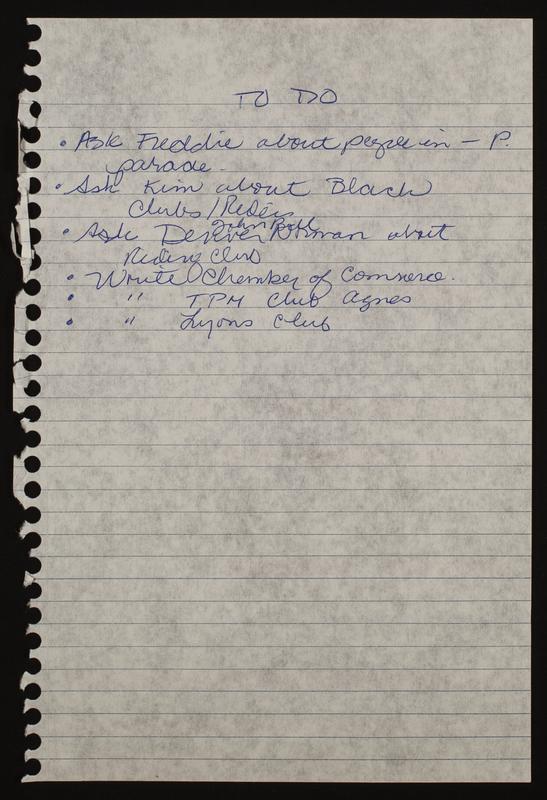 TO DO
• Ask Freddie about people in – P.
parade.
• Ask Kim about Black
Clubs / Riders
John Bell
• Ask Denver about
Riding Club
• Write Chamber of Commerce.
• " TPM Club Agnes
• " Lyons Club